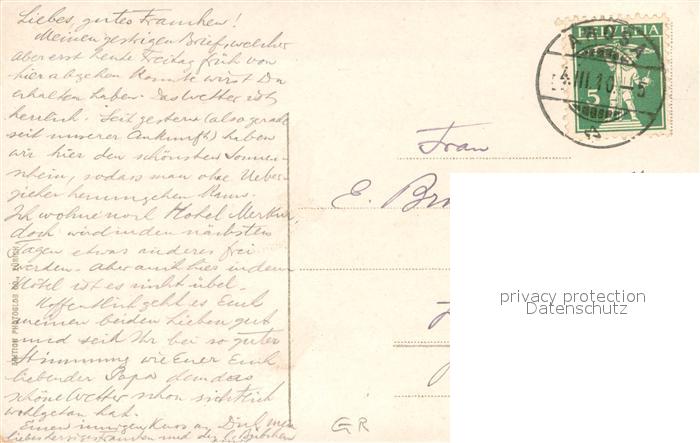 Liebes, gutes Frauchen!
Meinen gestrigen Brief, welcher
aber erst heute Freitag früh von
hier abgehen konnte wirst Du
erhalten haben. Das Wetter ist
herrlich. Seit gestern (also gerade
seit unserer Ankunft) haben
wir hier den schönsten Sonnen-
schein, sodass man ohne Ueber-
zieher herumgehen kann.
Ich wohne noch Hotel Merkur,
doch wird in den nächsten
Tagen etwas anderes frei
werden. Aber auch hier in dem
Hôtel ist es nicht übel.
Hoffentlich geht es Euch
meinen beiden Lieben gut
und seid Ihr bei so guter
Stimmung wie Euer Euch
liebender Papa dem das
schöne Wetter schon sichtlich
wohlgetan hat.
Einen innigen Kuss an Dich mein
liebes herziges Frauchen und
EDITION PHOTOGLOB ZÜRICH
HELVETIA
5
AROSA
III.10.-5
Frau
E.
privacy protection
Datenschutz
GR